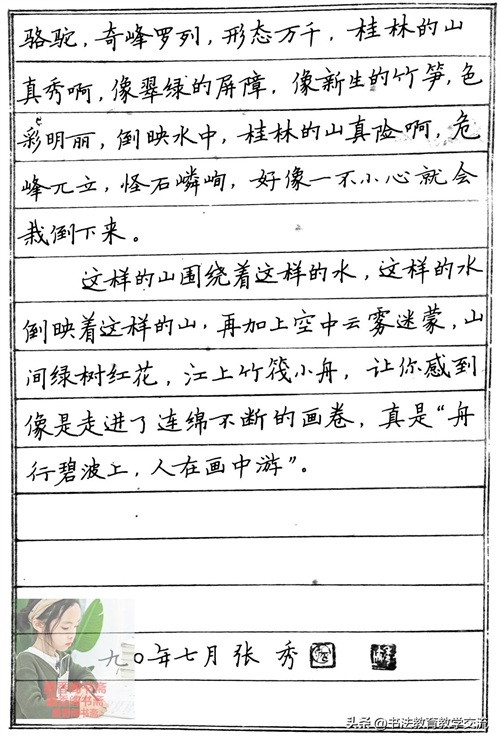 骆驼，奇峰罗列，形态万千，桂林的山
真秀啊，像翠绿的屏障，像新生的竹笋，色
彩明丽，倒映水中，桂林的山真险啊，危
峰兀立，怪石嶙峋，好像一不小心就会
栽倒下来。
这样的山围绕着这样的水，这样的水
倒映着这样的山，再加上空中云雾迷蒙，山
间绿树红花，江上竹筏小舟，让你感到
像是走进了连绵不断的画卷，真是“舟
行碧波上，人在画中游”。
九〇年七月张秀
头条@书法教育教学交流